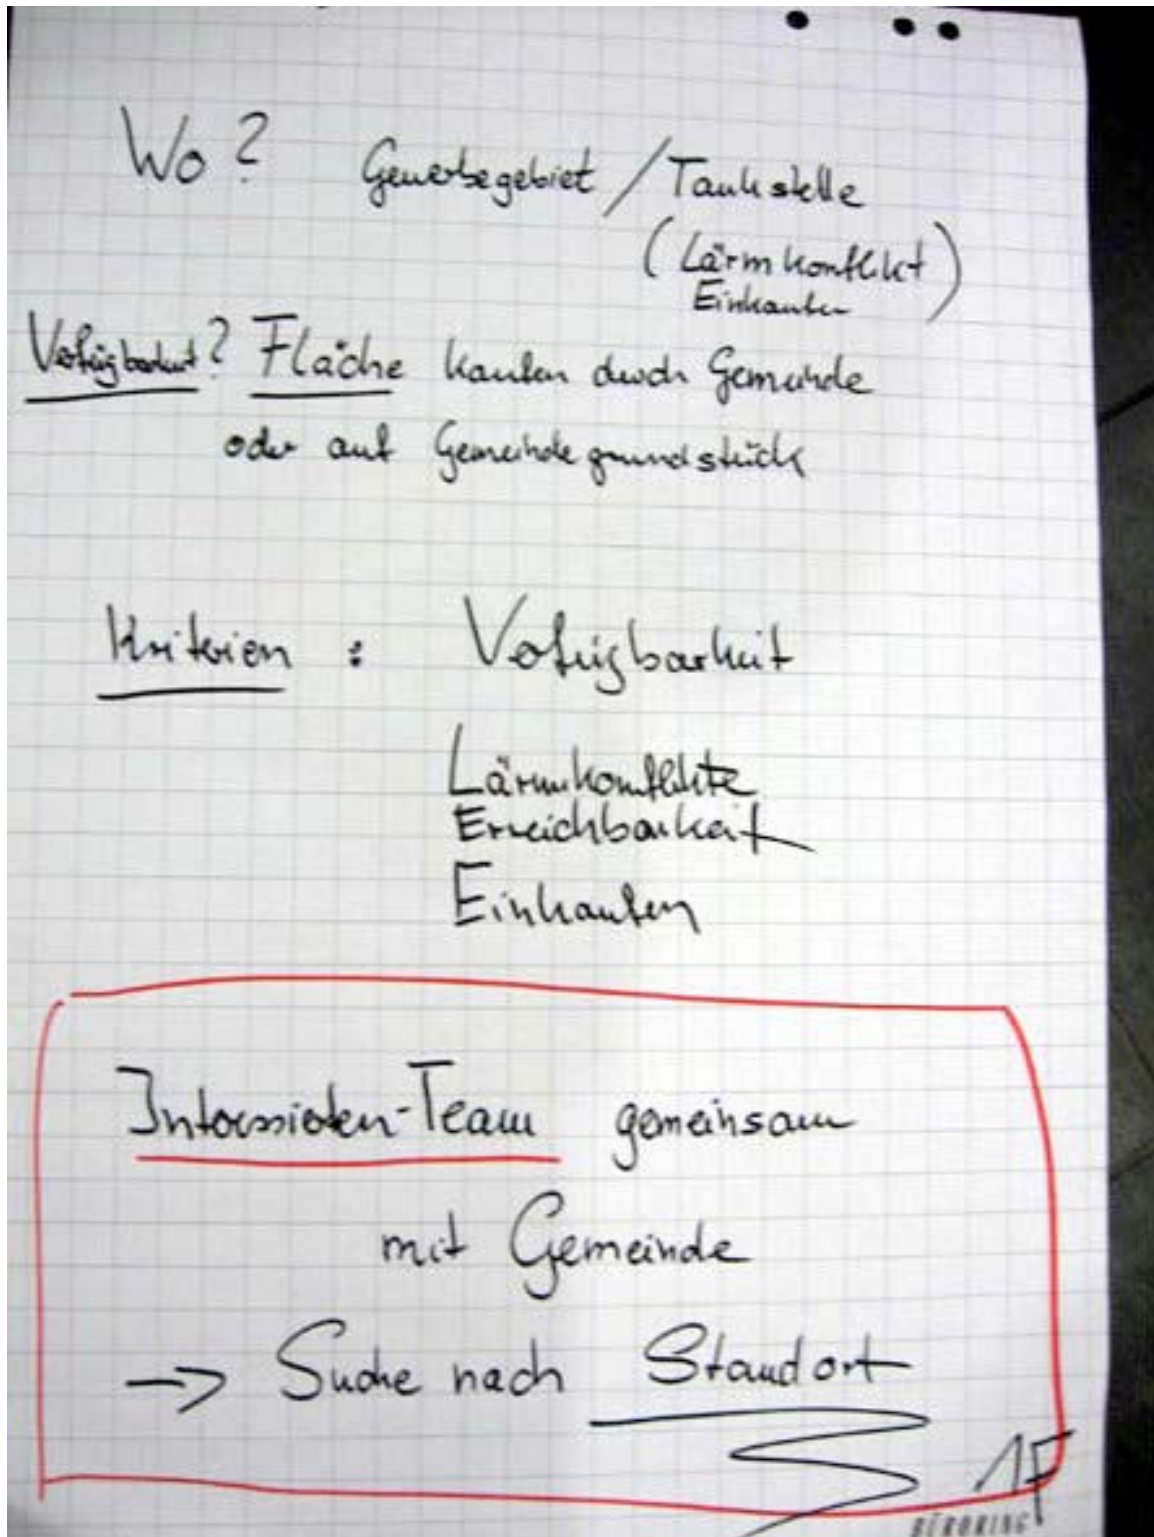 Wo? Gewerbegebiet / Tankstelle
(Lärmkonflikt
Einkaufen)
Verfügbarkeit? Fläche kaufen durch Gemeinde
oder auf Gemeindegrundstück
Kriterien : Verfügbarkeit
Lärmkonflikte
Erreichbarkeit
Einkaufen
Interessierten-Team gemeinsam
mit Gemeinde
→ Suche nach Standort
1F
BÜRORING